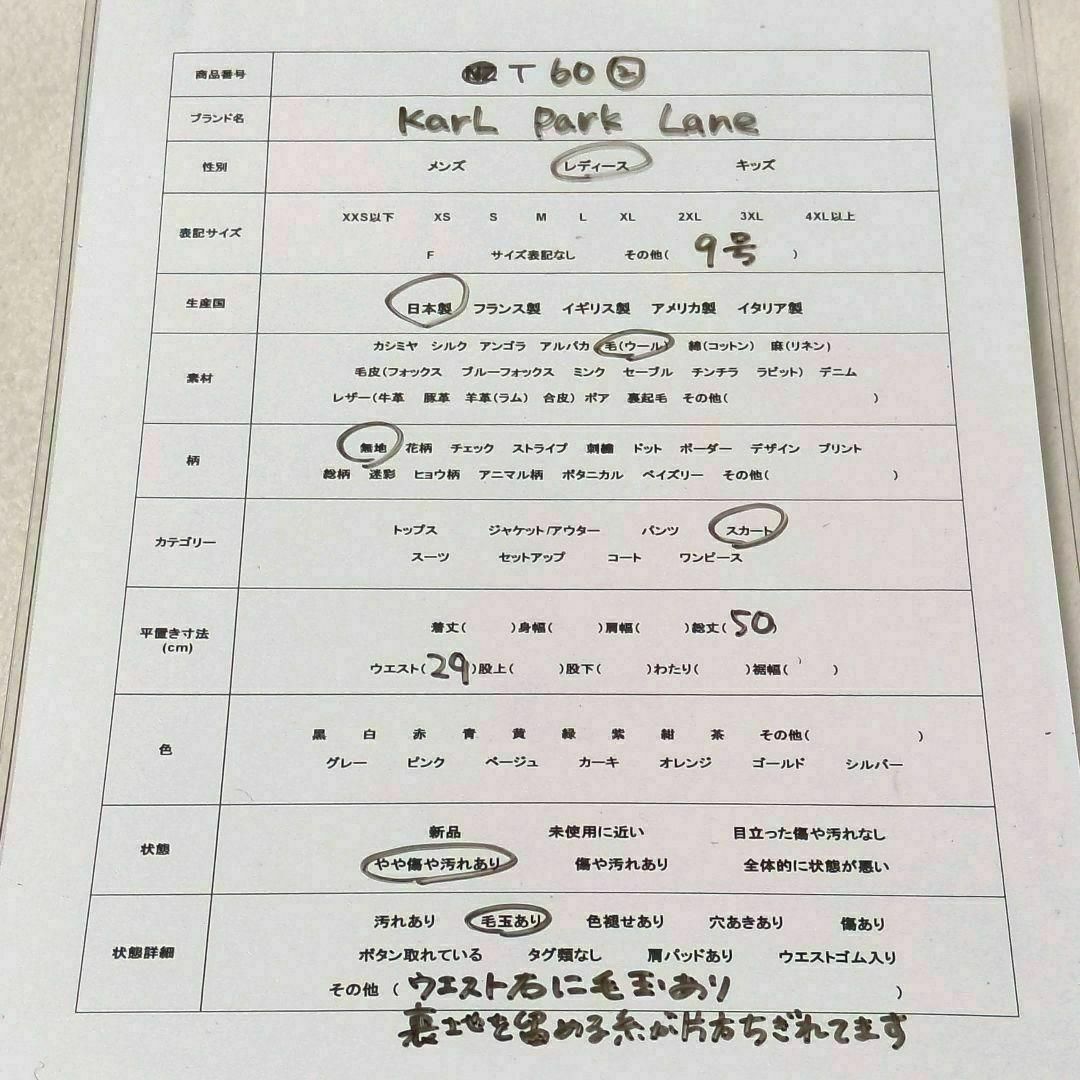 商品番号 T 60 ②
ブランド名 Karl Park Lane
性別 メンズ レディース キッズ
XXS以下 XS S M L XL 2XL 3XL 4XL以上
表記サイズ
F サイズ表記なし その他( 9号 )
生産国 日本製 フランス製 イギリス製 アメリカ製 イタリア製
カシミヤ シルク アンゴラ アルパカ 毛(ウール) 綿(コットン) 麻(リネン)
素材 毛皮(フォックス ブルーフォックス ミンク セーブル チンチラ ラビット) デニム
レザー(牛革 豚革 羊革(ラム) 合皮) ボア 裏起毛 その他( )
柄 無地 花柄 チェック ストライプ 刺繍 ドット ボーダー デザイン プリント
総柄 迷彩 ヒョウ柄 アニマル柄 ボタニカル ペイズリー その他( )
トップス ジャケット/アウター パンツ スカート
カテゴリー
スーツ セットアップ コート ワンピース
平置き寸法 着丈( )身幅( )肩幅( )総丈( 50 )
(cm)
ウエスト( 29 )股上( )股下( )わたり( )裾幅( )
黒 白 赤 青 黄 緑 紫 紺 茶 その他( )
色
グレー ピンク ベージュ カーキ オレンジ ゴールド シルバー
新品 未使用に近い 目立った傷や汚れなし
状態
やや傷や汚れあり 傷や汚れあり 全体的に状態が悪い
汚れあり 毛玉あり 色褪せあり 穴あきあり 傷あり
状態詳細 ボタン取れている タグ類なし 肩パッドあり ウエストゴム入り
その他 ( ウエスト右に毛玉あり )
裏地を留める糸が片方ちぎれてます